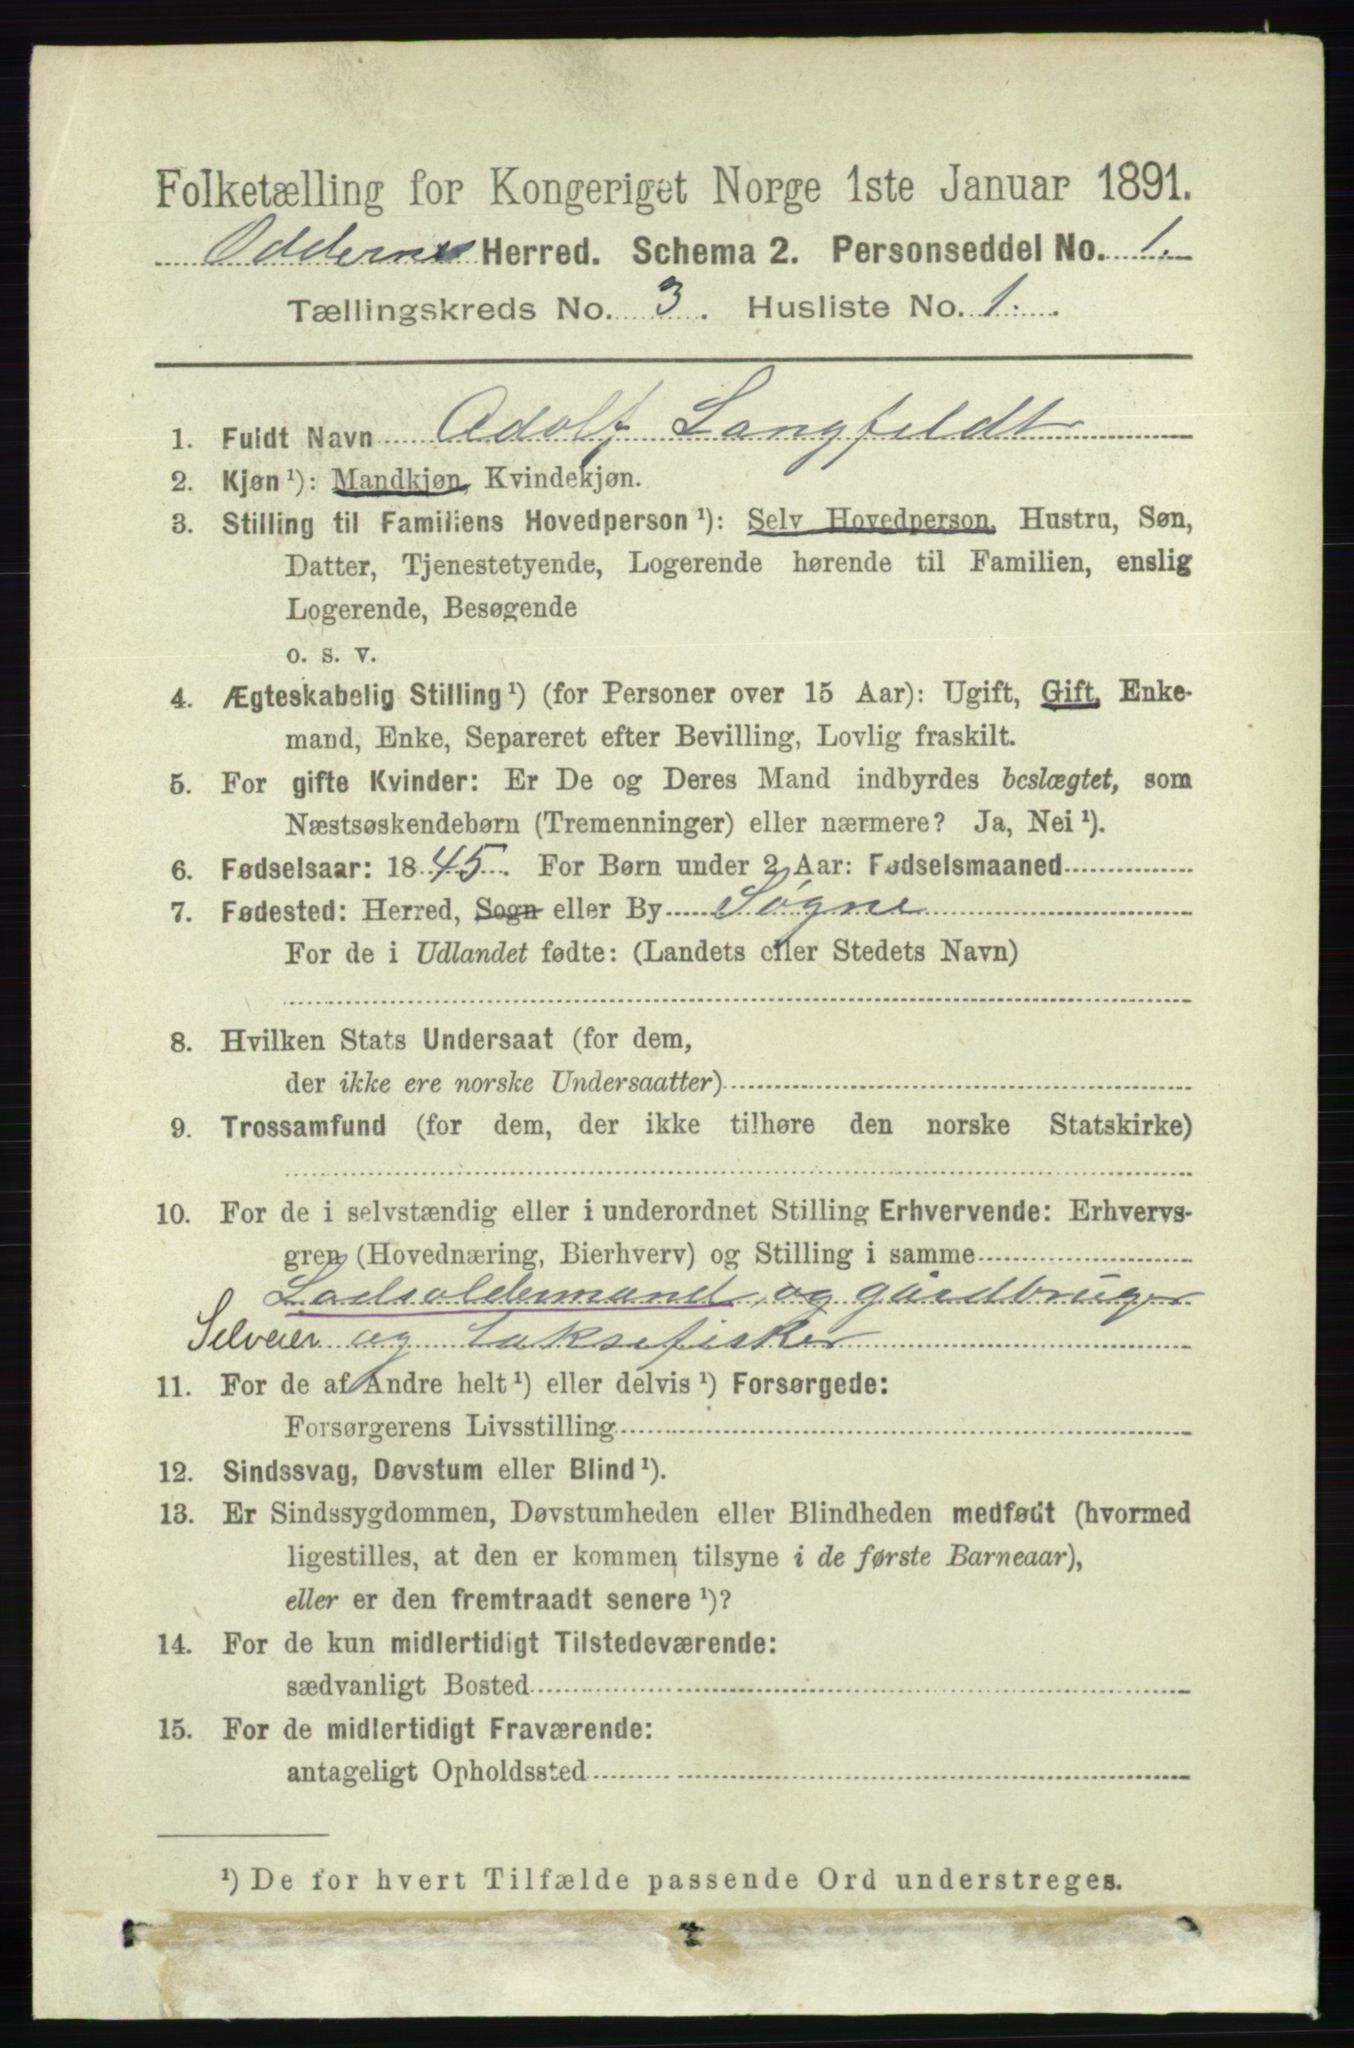 Folketælling for Kongeriget Norge 1ste Januar 1891.
Oddernes Herred. Schema 2. Personseddel No. 1.
Tællingskreds No. 3. Husliste No. 1.
1. Fuldt Navn Adolf Langfeldt
2. Kjøn ¹): Mandkjøn, Kvindekjøn.
3. Stilling til Familiens Hovedperson ¹): Selv Hovedperson, Hustru, Søn,
Datter, Tjenestetyende, Logerende hørende til Familien, enslig
Logerende, Besøgende
o. s. v.
4. Ægteskabelig Stilling ¹) (for Personer over 15 Aar): Ugift, Gift, Enke-
mand, Enke, Separeret efter Bevilling, Lovlig fraskilt.
5. For gifte Kvinder: Er De og Deres Mand indbyrdes beslægtet, som
Næstsøskendebørn (Tremenninger) eller nærmere? Ja, Nei ¹).
6. Fødselsaar: 1845. For Børn under 2 Aar: Fødselsmaaned
7. Fødested: Herred, Sogn eller By Søgne
For de i Udlandet fødte: (Landets eller Stedets Navn)
8. Hvilken Stats Undersaat (for dem,
der ikke ere norske Undersaatter)
9. Trossamfund (for dem, der ikke tilhøre den norske Statskirke)
10. For de i selvstændig eller i underordnet Stilling Erhvervende: Erhvervs-
gren (Hovednæring, Bierhverv) og Stilling i samme
Lodsoldermand og gårdbruger
Selveier og laksefisker
11. For de af Andre helt ¹) eller delvis ¹) Forsørgede:
Forsørgerens Livsstilling
12. Sindssvag, Døvstum eller Blind ¹).
13. Er Sindssygdommen, Døvstumheden eller Blindheden medfødt (hvormed
ligestilles, at den er kommen tilsyne i de første Barneaar),
eller er den fremtraadt senere ¹)?
14. For de kun midlertidigt Tilstedeværende:
sædvanligt Bosted
15. For de midlertidigt Fraværende:
antageligt Opholdssted
¹) De for hvert Tilfælde passende Ord understreges.